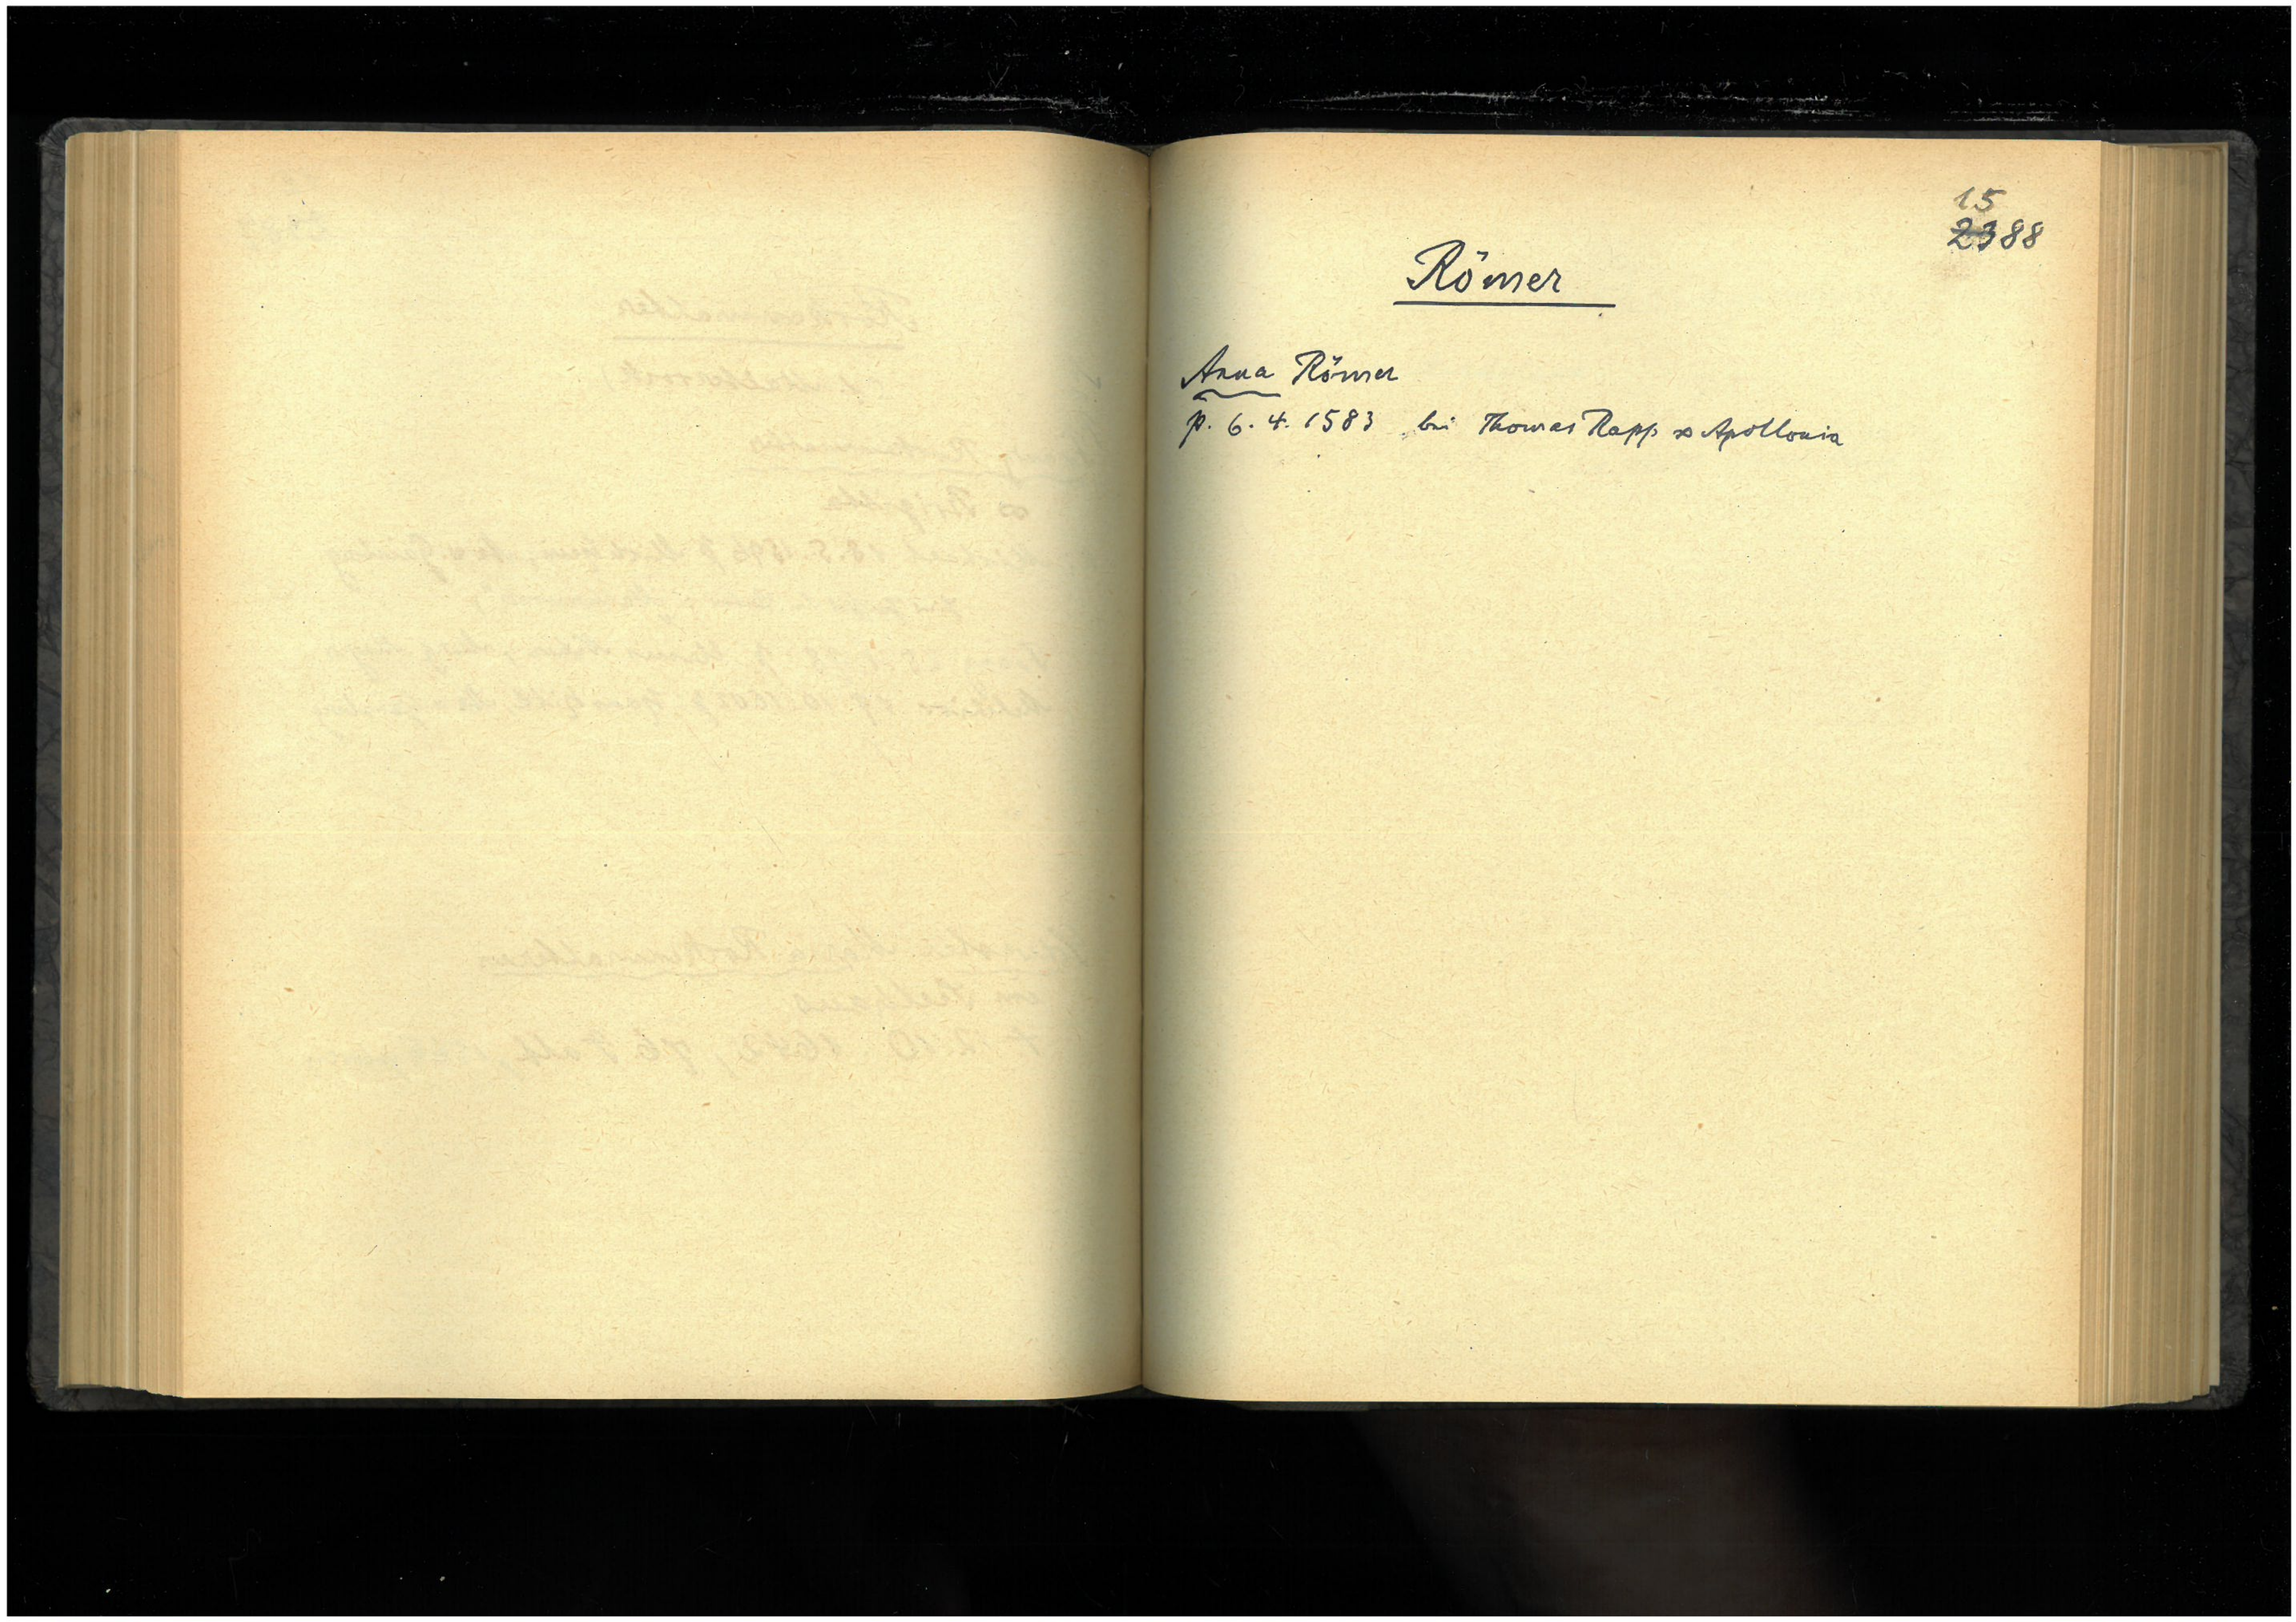 15
2388
Römer
Anna Römer
p. 6. 4. 1583 bei Thomas Rapp ∞ Apollonia